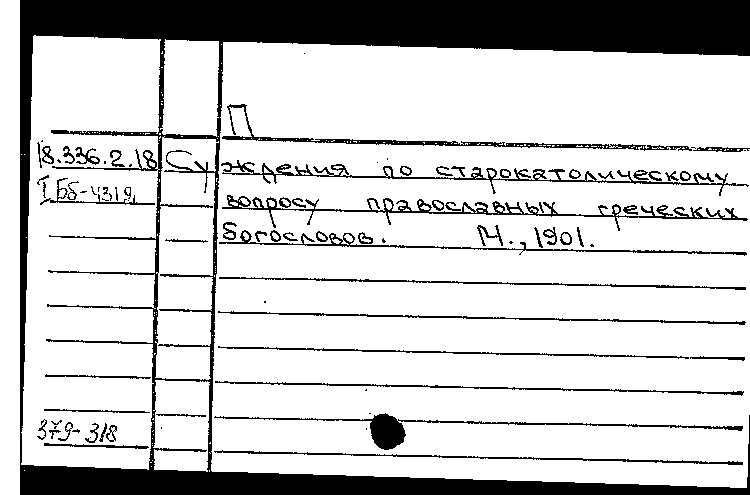 П
18.336.2.18 Суждения по старокатолическому
I Бб-4319 вопросу православных греческих
богословов. М., 1901.
379-318